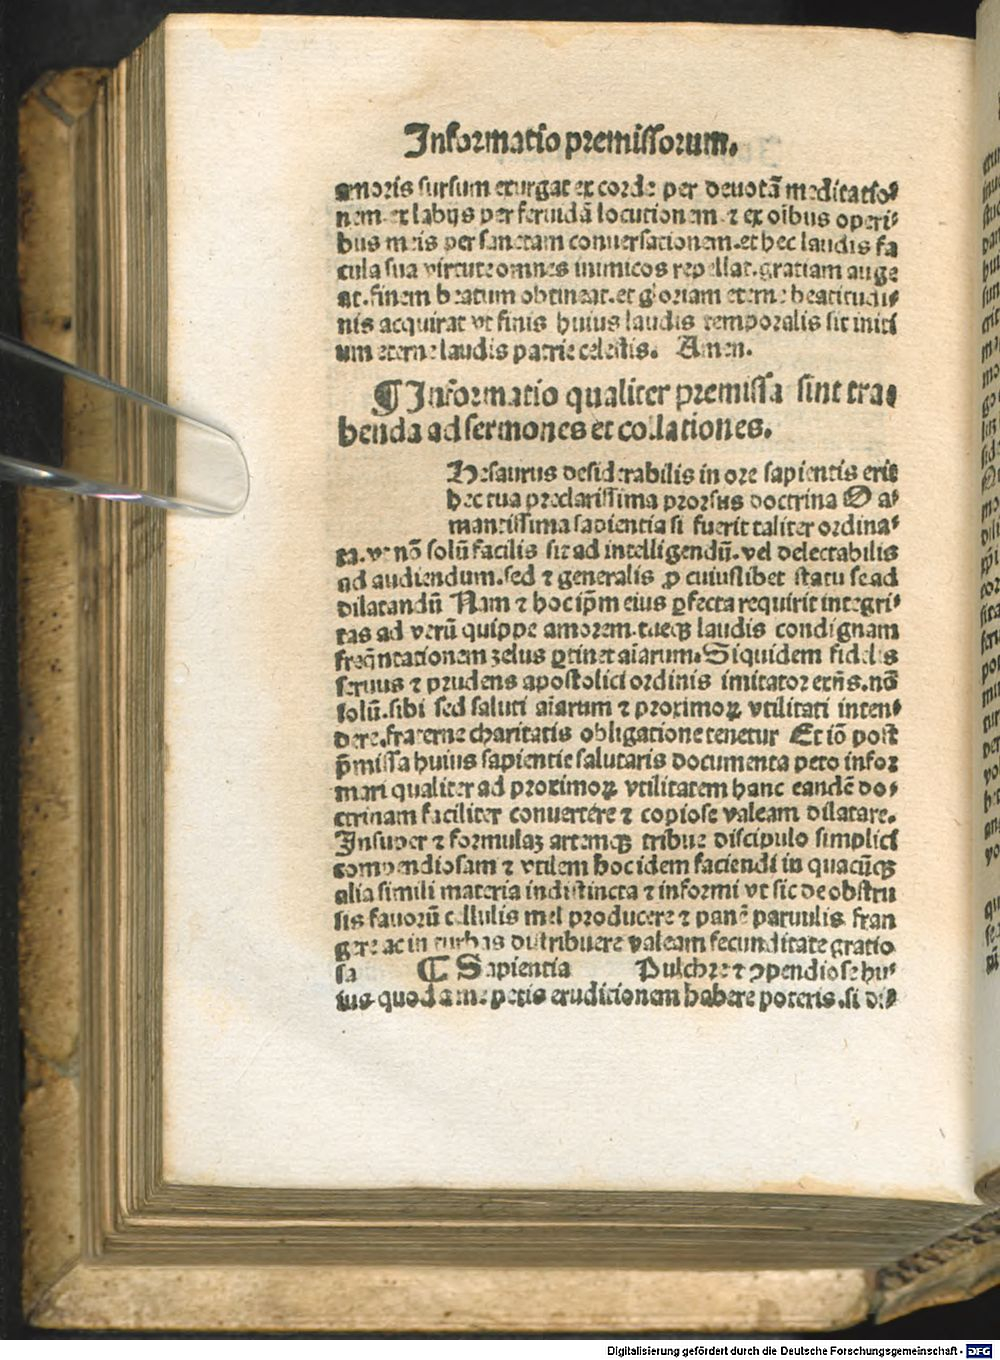 Informatio premissorum.
amoris sursum exurgat ex corde per deuotā meditatio-
nem. ex labijs per feruidā locutionem ⁊ ex oībus operi-
bus meis per sanctam conuersationem. et hec laudis fa
cula sua virtute omnes inimicos repellat. gratiam auge
at. finem beatum obtineat. et gloriam eterne beatitudi-
nis acquirat vt finis huius laudis temporalis sit initi
um eterne laudis patrie celestis. Amen.
¶ Informatio qualiter premissa sint tra-
henda ad sermones et collationes.
Hesaurus desiderabilis in ore sapientis erit
hec tua preclarissima prorsus doctrina O a-
mantissima sapientia si fuerit taliter ordina-
ta. vt nō solū facilis sit ad intelligendū. vel delectabilis
ad audiendum. sed ⁊ generalis ꝓ cuiuslibet statu se ad
dilatandū Nam ⁊ hoc ip̄m eius ꝑfecta requirit integri-
tas ad verū quippe amorem. tueqꝫ laudis condignam
freq̄ntationem zelus ꝑtinet aīarum. Siquidem fidelis
seruus ⁊ prudens apostolici ordinis imitator extn̄s. nō
solū. sibi sed saluti aīarum ⁊ proximoꝝ vtilitati inten-
dere. fraterne charitatis obligatione tenetur Et iō post
p̄missa huius sapientie salutaris documenta peto infor
mari qualiter ad proximoꝝ vtilitatem hanc eandē do-
ctrinam faciliter conuertere ⁊ copiose valeam dilatare.
Insuper ⁊ formulaꝫ artemqꝫ tribue discipulo simplici
compendiosam ⁊ vtilem hoc idem faciendi in quacūqꝫ
alia simili materia indistincta ⁊ informi vt sic de obstru
sis fauorū cellulis mel producere ⁊ panē paruulis fran
gere ac in turbas distribuere valeam fecunditate gratio
sa ¶ Sapientia Pulchre ⁊ ꝯpendiose hu-
ius quod a me petis eruditionem habere poteris. si di-
Digitalisierung gefördert durch die Deutsche Forschungsgemeinschaft - DFG